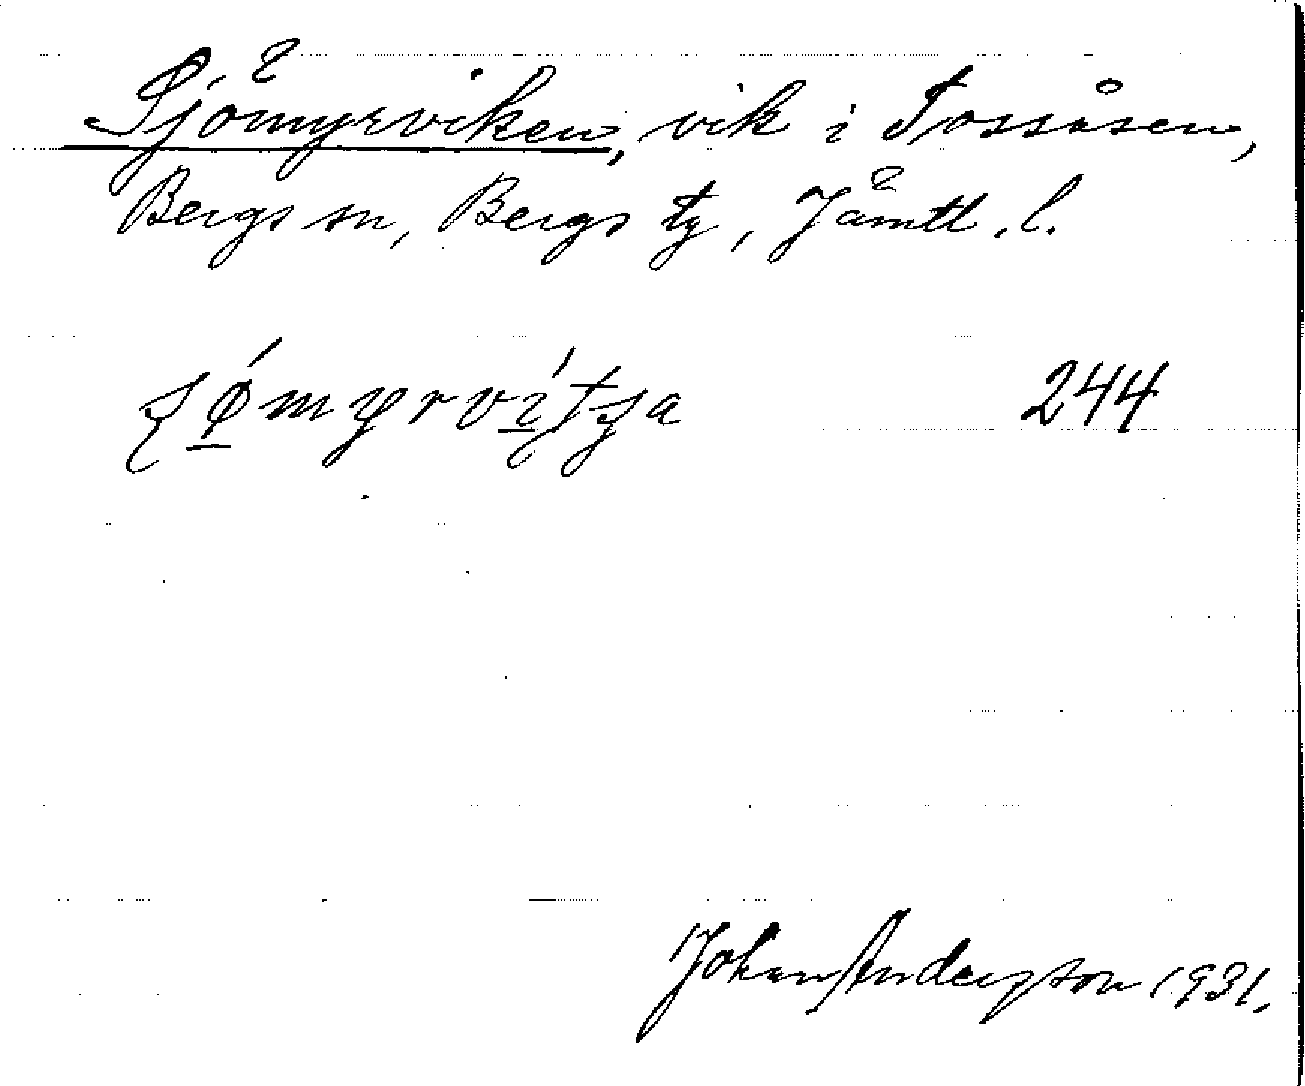 Sjömyrviken, vik i Fossåsen,
Bergs sn, Bergs tg, Jämtl. l.
244
Johan Anderson 1931.